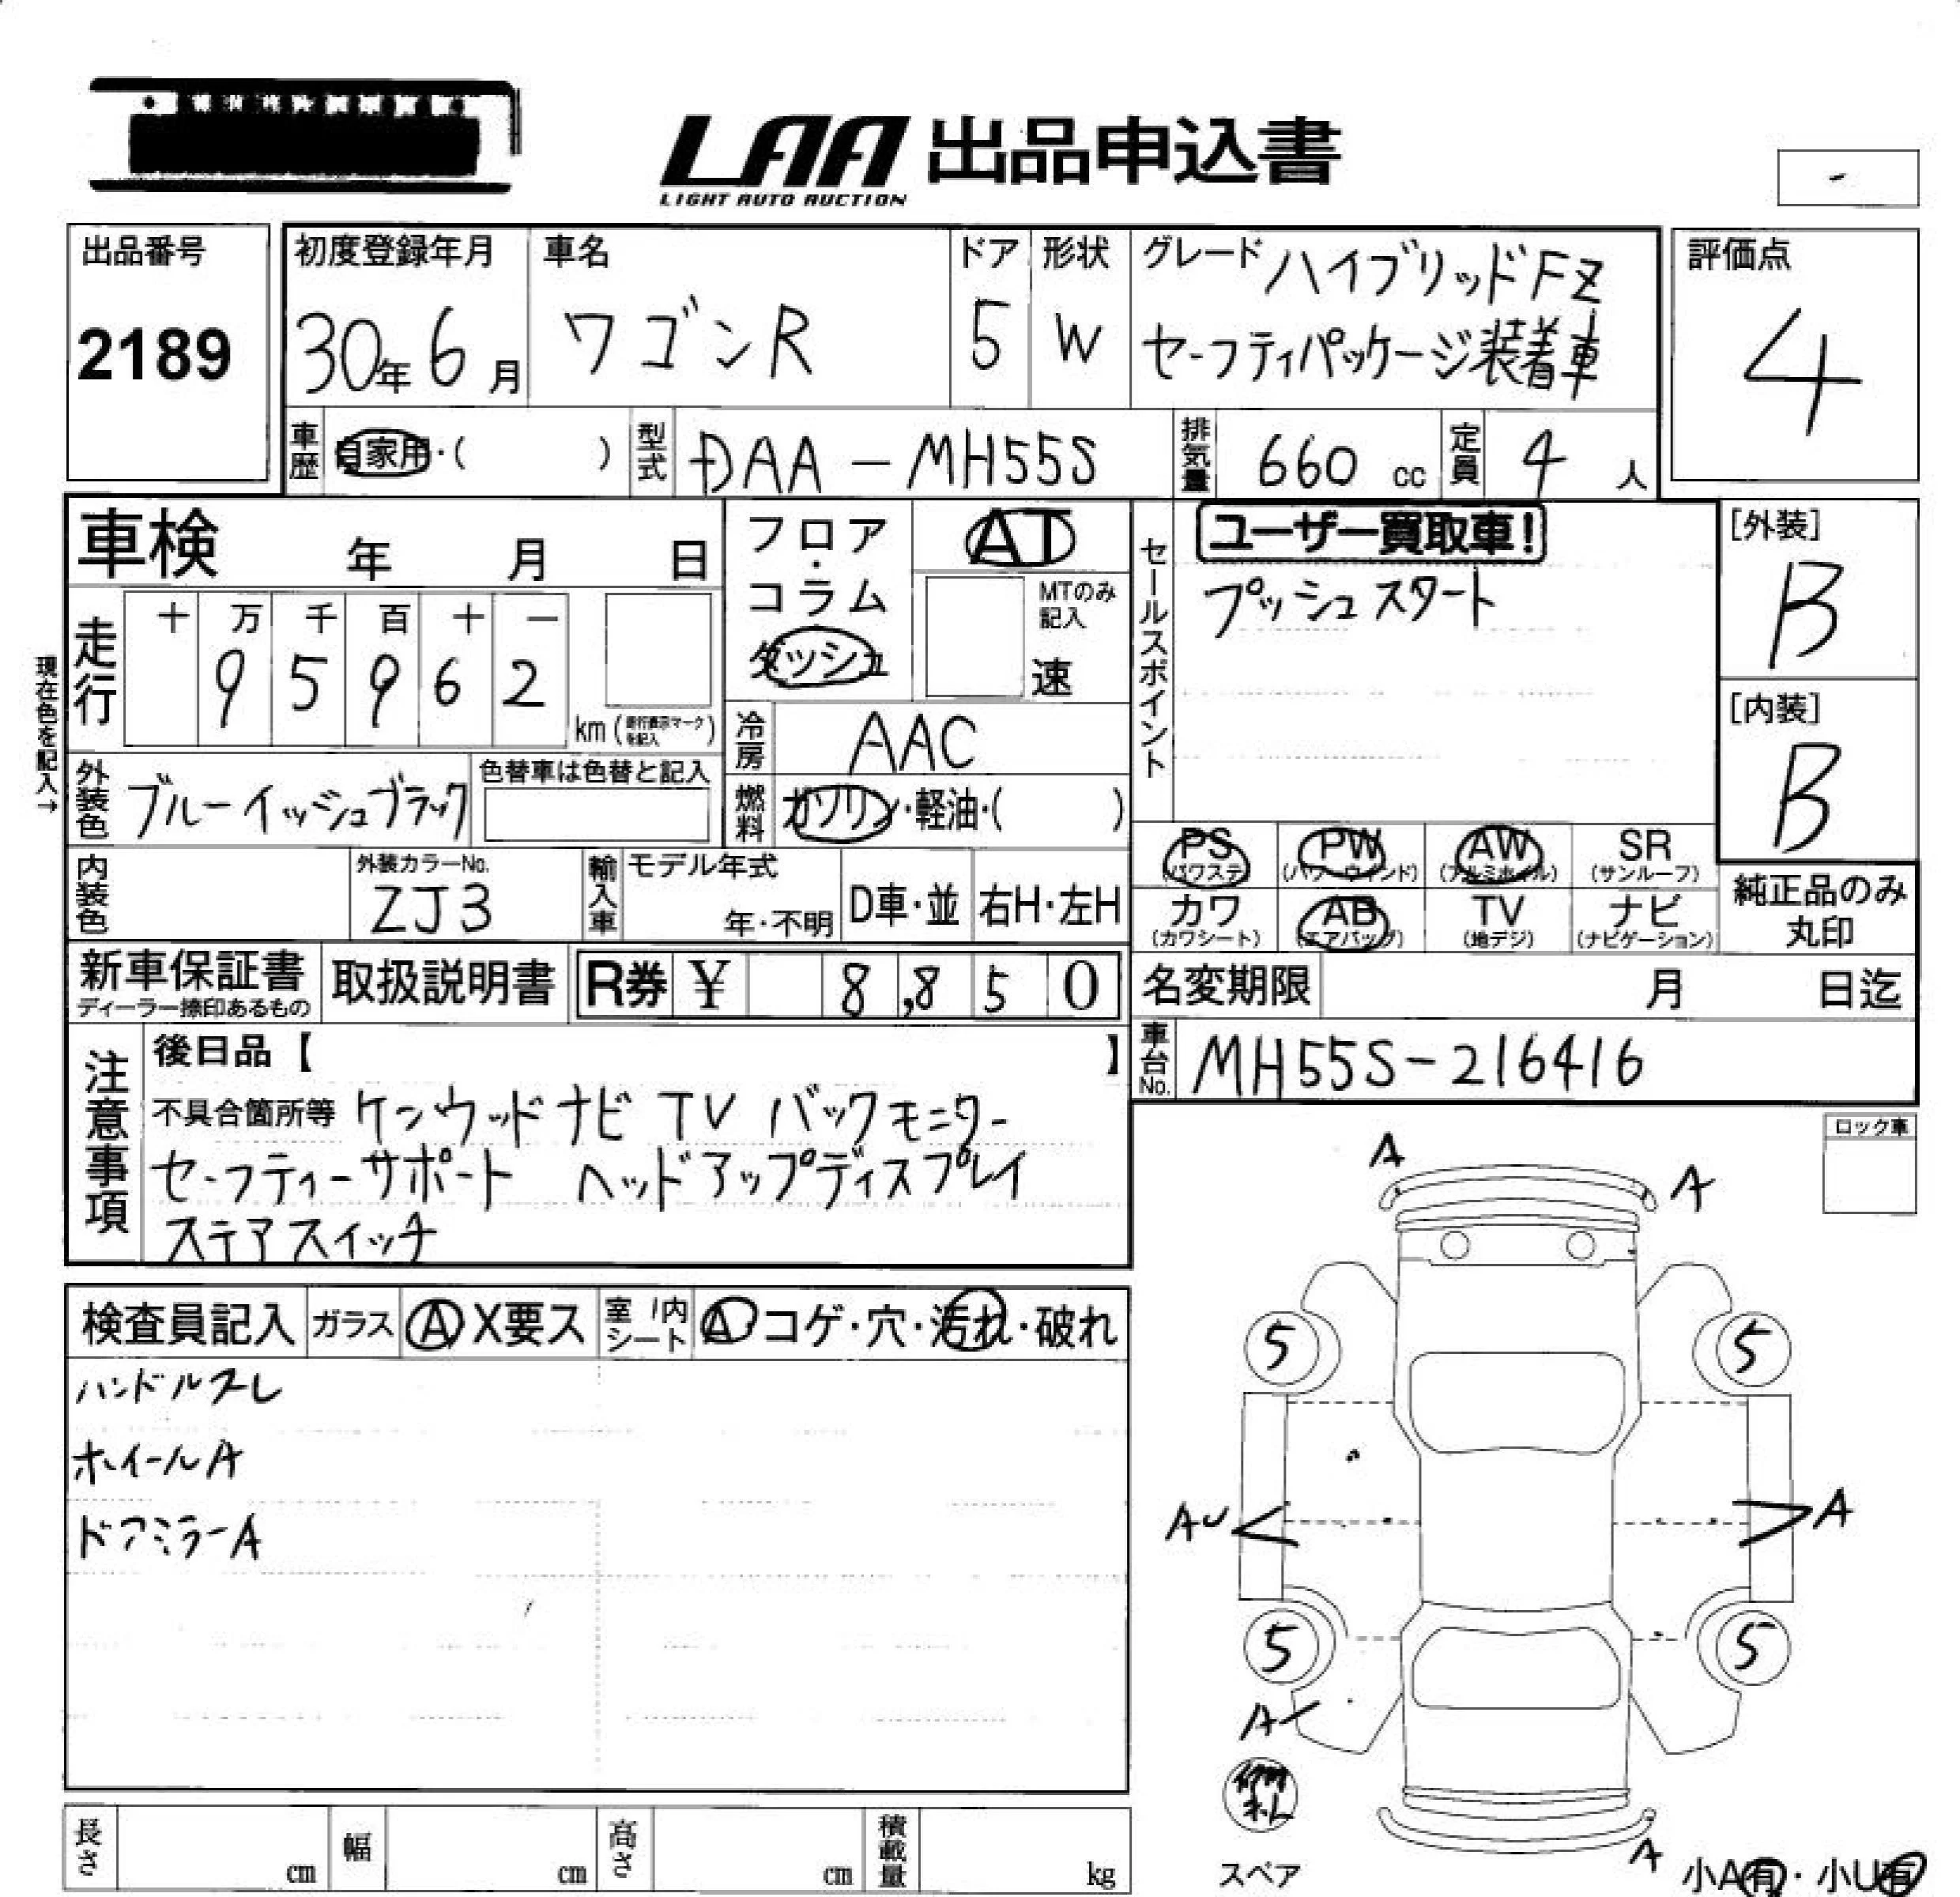 LAA 出品申込書
LIGHT AUTO AUCTION
-
出品番号
2189
初度登録年月
30年6月
車名
ワゴンR
ドア
5
形状
W
グレード ハイブリッドFZ
セーフティパッケージ装着車
評価点
4
車歴 自家用・( )
型式 DAA-MH55S
排気量 660 cc
定員 4 人
車検 年 月 日
現在色を記入→
走行
十 万 千 百 十 一
9 5 9 6 2
km(走行表示マークを記入)
フロア・コラム
ダッシュ
AT
MTのみ記入
速
冷房 AAC
燃料 ガソリン・軽油・( )
外装色 ブルーイッシュブラック
色替車は色替と記入
内装色
外装カラーNo.
ZJ3
輸入車
モデル年式
年・不明
D車・並
右H・左H
セールスポイント
ユーザー買取車!
プッシュスタート
[外装]
B
[内装]
B
PS
(パワステ)
PW
(パワーウインド)
AW
(アルミホイル)
SR
(サンルーフ)
カワ
(カワシート)
AB
(エアバッグ)
TV
(地デジ)
ナビ
(ナビゲーション)
純正品のみ
丸印
新車保証書
ディーラー捺印あるもの
取扱説明書
R券 ¥ 8,850
名変期限 月 日迄
車台No. MH55S-216416
注意事項
後日品【 】
不具合箇所等 ケンウッドナビ TV バックモニター
セーフティーサポート ヘッドアップディスプレイ
ステアスイッチ
ロック車
検査員記入
ガラス A X要ス
室内シート A コゲ・穴・汚れ・破れ
ハンドルスレ
ホイールA
ドアミラーA
A
A
5
5
AU
A
5
5
A
A
スペア
小A有・小U有
長さ cm
幅 cm
高さ cm
積載量 kg